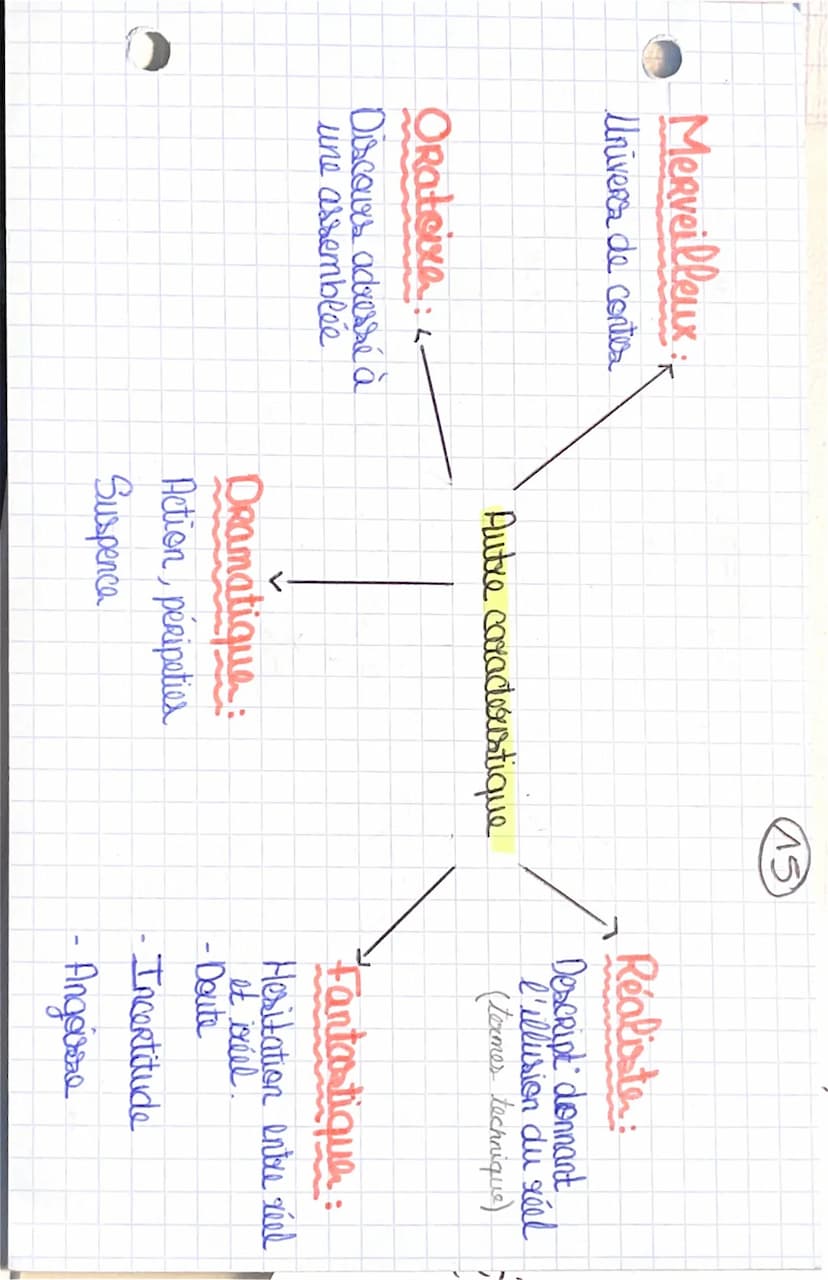 15
Autre caractéristique
Merveilleux :
Univers de contes
Réaliste :
Descript° donnant
l'illusion du réel
(termes technique)
Oratoire :
Discours adressé à
une assemblée
Dramatique :
Action, péripeties
Suspence
Fantastique :
Hesitation entre réel
et iréel.
- Doute
- Incertitude
- Angoisse